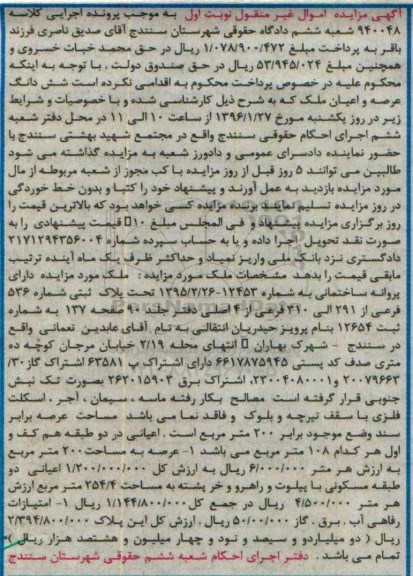 آگهی مزایده اموال غیر منقول نوبت اول به موجب پرونده اجرایی کلاسه
۹۴۰۰۴۸ شعبه ششم دادگاه حقوقی شهرستان سنندج آقای صدیق ناصری فرزند
باقر به پرداخت مبلغ ۱/۰۷۸/۹۰۰/۴۷۲ ریال در حق محمد خیات خسروی و
همچنین مبلغ ۵۳/۹۴۵/۰۲۴ ریال در حق صندوق دولت . با توجه به اینکه
محکوم علیه در خصوص پرداخت محکوم به اقدامی نکرده است شش دانگ
عرصه و اعیان ملک که به شرح ذیل کارشناسی شده و با خصوصیات و شرایط
زیر در روز یکشنبه مورخ ۱۳۹۶/۱/۲۷ از ساعت ۱۰ الی ۱۱ در محل دفتر شعبه
ششم اجرای احکام حقوقی سنندج واقع در مجتمع شهید بهشتی سنندج با
حضور نماینده دادسرای عمومی و دادورز شعبه به مزایده گذاشته می شود
طالبین می توانند ۵ روز قبل از روز مزایده با کسب مجوز از شعبه مربوطه از مال
مورد مزایده بازدید به عمل آورند و پیشنهاد خود را کتبا و بدون خط خوردگی
در روز مزایده تسلیم نمایند برنده مزایده کسی خواهد بود که بالاترین قیمت را
روز برگزاری مزایده پیشنهاد و فی المجلس مبلغ ۱۰ قیمت پیشنهادی را به
صورت نقد تحویل اجرا داده و یا به حساب سپرده شماره ۲۱۷۱۲۹۴۳۵۶۰۰۴
دادگستری نزد بانک ملی واریز نماید و حداکثر ظرف یک ماه آینده ترتیب
مابقی قیمت را بدهد مشخصات ملک مورد مزایده : ملک مورد مزایده دارای
پروانه ساختمانی به شماره ۱۲۴۵۳-۱۳۹۵/۲/۲۶ تحت پلاک ثبتی شماره ۵۳۶
فرعی از ۲۹۱ الی ۳۱۰ فرعی از ۴ اصلی دفتر جلد ۹۰ صفحه ۱۳۷ به شماره
ثبت ۱۲۶۵۴ بنام پرویز حیدریان انتقالی به نام آقای عابدین نعمانی واقع
در سنندج - شهرک بهاران انتهای محله ۲/۱۹ خیابان مرجان کوچه ده
متری صدف کد پستی ۶۶۱۷۸۷۵۹۴۵ دارای اشتراک پ ۶۳۵۸۱ اشتراک گاز ۳۰/
۲۰۰۷۹۶۶۳ و ۲۳۰۰۴۰۸۰۰۰۱ اشتراک برق ۲۶۲۰۱۵۹۰۳ بصورت تک نبش
جنوبی قرار گرفته است مصالح بکار رفته ماسه ، سیمان ، آجر ، اسکلت
فلزی با سقف تیرچه و بلوک و فاقد نما می باشد مساحت عرصه برابر
سند وضع موجود برابر ۲۰۰ متر مربع است . اعیانی در دو طبقه هم کف و
اول هر کدام ۱۰۸ متر مربع می باشد ۱- عرصه به مساحت ۲۰۰ متر مربع
به ارزش هر متر ۶/۰۰۰/۰۰۰ ریال به ارزش کل ۱/۲۰۰/۰۰۰/۰۰۰ اعیانی دو
طبقه مسکونی با پیلوت و راهرو و خر پشته به مساحت ۲۵۴/۴ متر مربع ارزش
هر متر ۴/۵۰۰/۰۰۰ ریال در جمع کل ۱/۱۴۴/۸۰۰/۰۰۰ ریال ۱- امتیازات
رفاهی آب . برق . گاز ۵۰/۰۰/۰۰۰ ریال . ارزش کل این پلاک ۲/۳۹۴/۸۰۰/۰۰۰
ریال ( دو میلیاردو و سیصد و نود و چهار میلیون و هشتصد هزار ریال )
تمام می باشد . دفتر اجرای احکام شعبه ششم حقوقی شهرستان سنندج